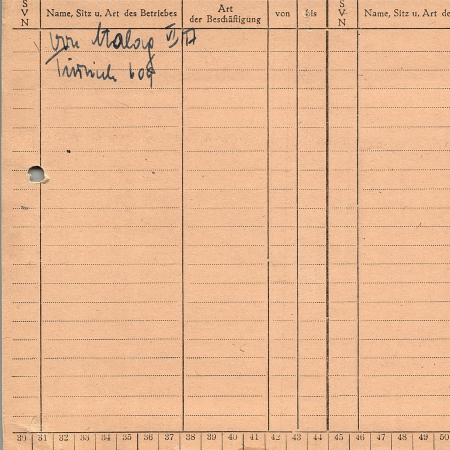 S V N Name, Sitz u. Art des Betriebes Art der Beschäftigung von bis S V N Name, Sitz u. Art de
von
30 31 32 33 34 35 36 37 38 39 40 41 42 43 44 45 46 47 48 49 50